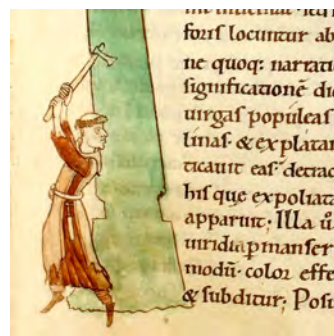 foris locuntur ab
ne quoq: narrati
significationē di
uirgas populeas
linas· & explatan
ticauit eas· detrac
his que expoliata
apparuit; Illa ū
uiridia pmanser
modū· color effe
& subditur; Posu